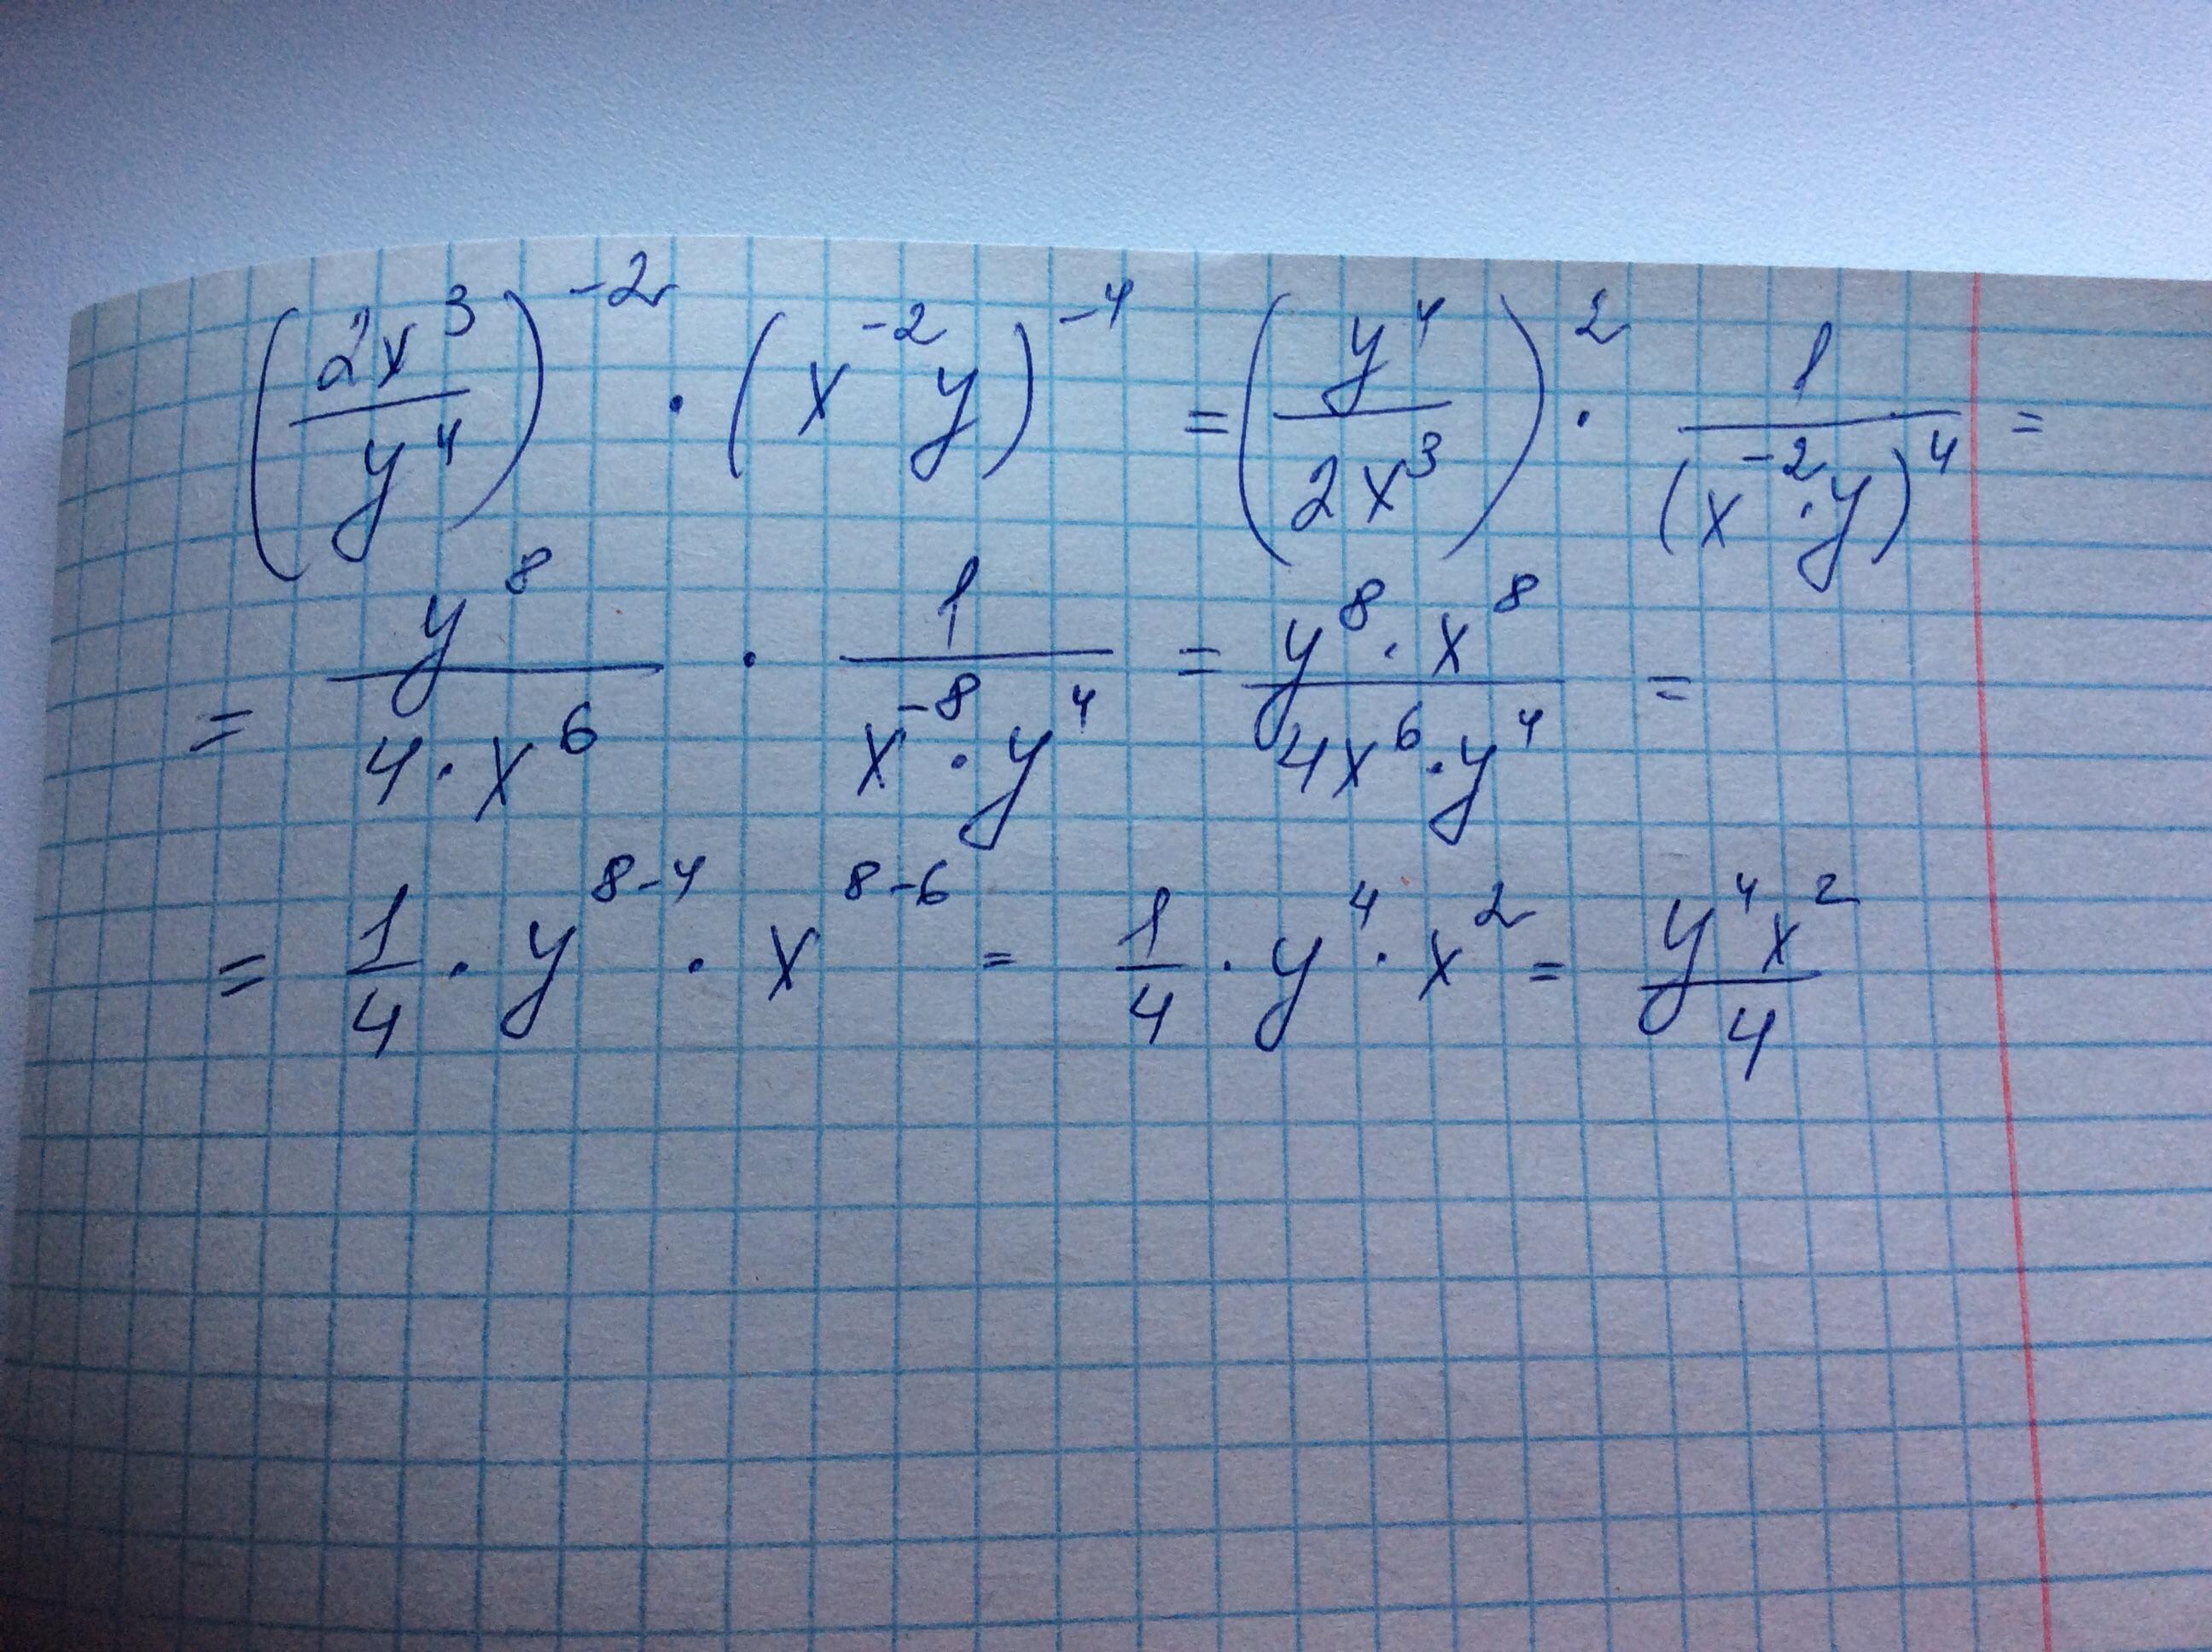 (2x³/y⁴)⁻² · (x⁻²y)⁻⁴ = (y⁴/2x³)² · 1/(x⁻²·y)⁴ =
= y⁸/4·x⁶ · 1/x⁻⁸·y⁴ = y⁸·x⁸/4x⁶·y⁴ =
= 1/4 · y⁸⁻⁴ · x⁸⁻⁶ = 1/4 · y⁴ · x² = y⁴x²/4